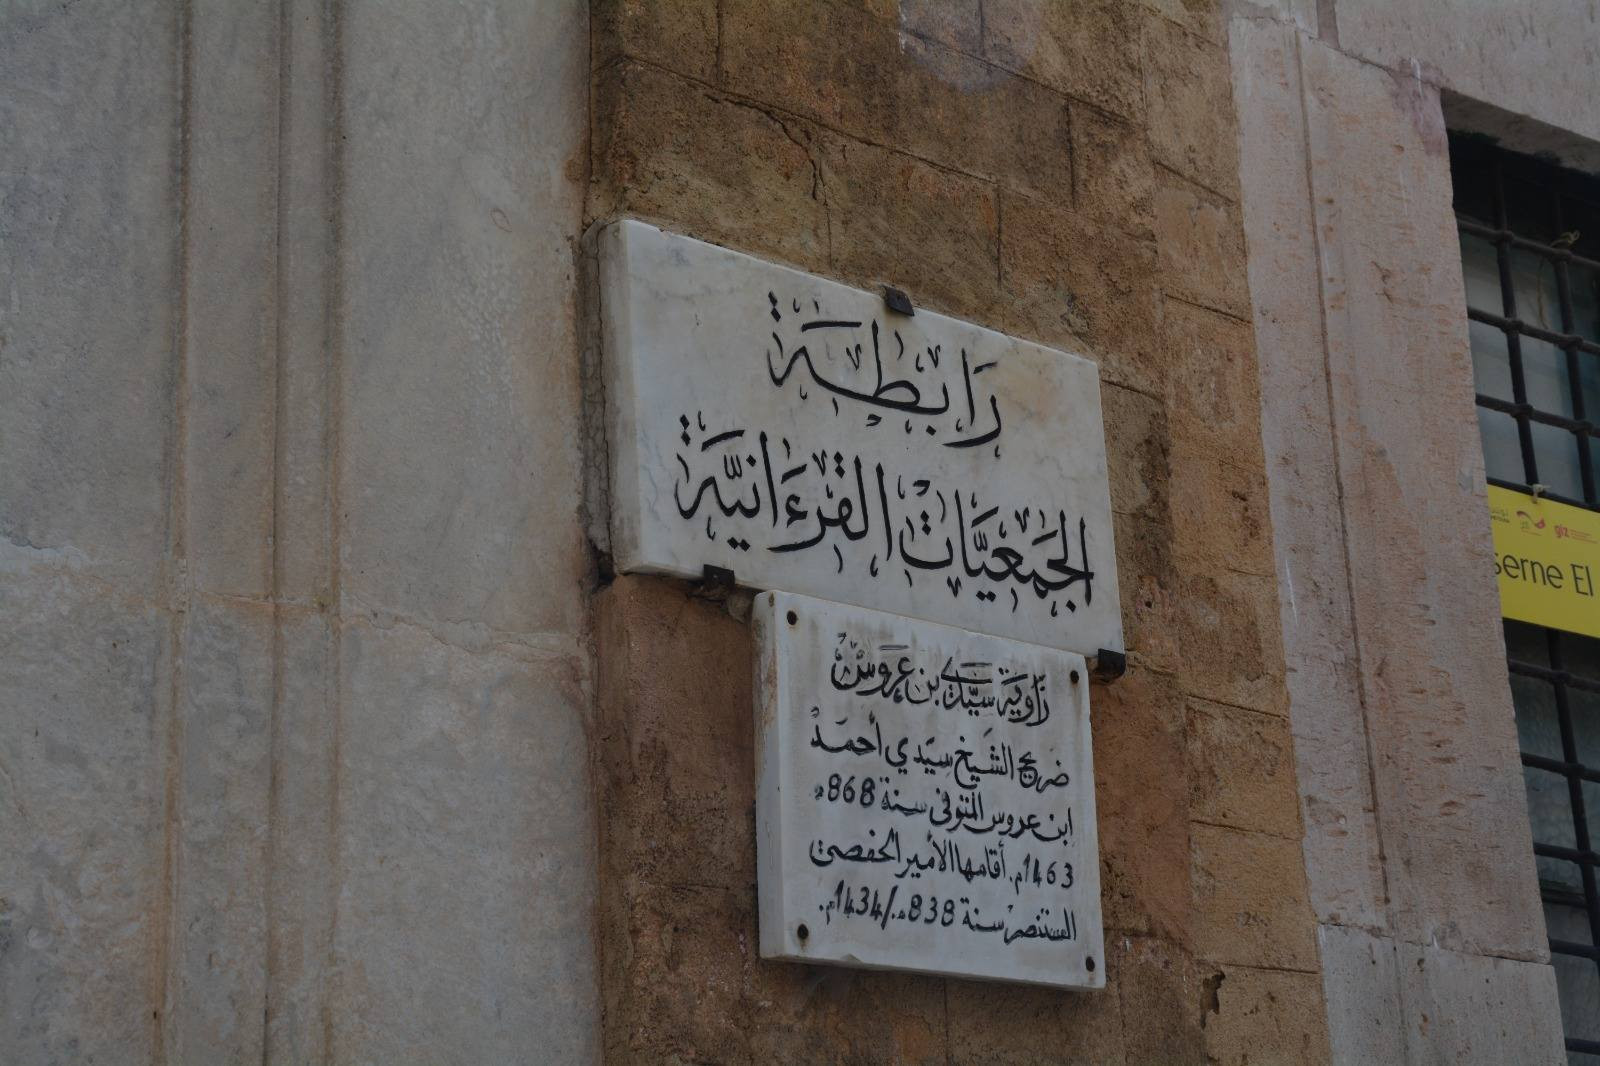 رَابِطَة
الجَمعِيَّات القُرءَانِيَّة
زَاوِيَة سَيِّدِي بن عَرُوسْ
ضريح الشَيخ سِيَدي أحمَدْ
ابن عروس المتوفى سنة 868هـ
1463م. أقامها الأمير الحفصي
المستنصر سنة 838هـ/1434م.
giz
serne El